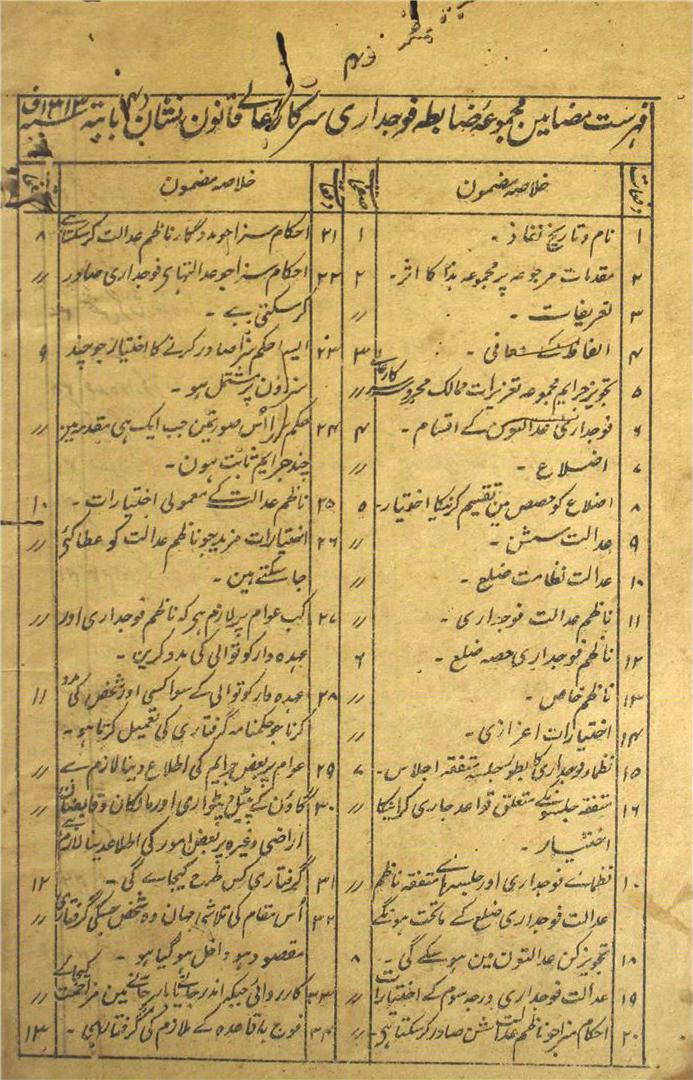 فہرست مضامین مجموعہ ضابطہ فوجداری سرکار عالی قانون نشان (۴) بابتہ سنہ ۱۳۱۳ف
دفعات خلاصہ مضمون صفحات
۱ نام و تاریخ نفاذ ۔ ۱
۲ مقدمات مرجوعہ پر مجموعہ ہذا کا اثر ۔ ۲
۳ تعریفات ۔ ״
۴ الفاظ کے معافی ۔ ۳
۵ تجویز جرایم مجموعہ تعزیرات ممالک محروسہ سرکار عالی ״
۶ فوجداری عدالتوں کے اقسام ۔ ۴
۷ اضلاع ۔ ״
۸ اضلاع کو حصص مین تقسیم کرنیکا اختیار ۔ ۵
۹ عدالت سشن ۔ ״
۱۰ عدالت نظامت ضلع ۔ ״
۱۱ ناظم عدالت فوجداری ۔ ״
۱۲ ناظم فوجداری حصہ ضلع ۔ ۶
۱۳ ناظم خاص ۔ ״
۱۴ اختیارات اعزازی ۔ ״
۱۵ نظماء فوجداری کا بطور جلسہ متفقہ اجلاس ۔ ۷
۱۶ متفقہ جلسونکے متعلق قواعد جاری کرانیکا ״
اختیار ۔
۱۰ نظمائے فوجداری اور جلسہ ہائے متفقہ ناظم ״
عدالت فوجداری ضلع کے ماتحت ہونگے
۱۸ تجویز کن عدالتون مین ہوسکے گی ۔ ۸
۱۹ عدالت فوجداری درجہ سوم کے اختیارات ״
۲۰ احکام سزا جو ناظم عدالت سشن صادر کرسکتا ہی ۔ ״
دفعات خلاصہ مضمون صفحات
۲۱ احکام سزا جو مددگار ناظم عدالت کرسکتا ہے ۸
۲۲ احکام سزا جو عدالتہای فوجداری صادر ״
کرسکتی ہے ۔
۲۳ ایسا حکم سزا صادر کرنے کا اختیار جو چند ۹
سزاؤن پر مشتمل ہو ۔
۲۴ حکم سزا اُس صورتمین جب ایک ہی مقدمہ مین ״
چند جرایم ثابت ہون ۔
۲۵ ناظم عدالت کے معمولی اختیارات ۔ ۱۰
۲۶ اختیارات مزید جو ناظم عدالت کو عطا کئے ״
جا سکتے ہین ۔
۲۷ کب عوام پر لازم ہی کہ ناظم فوجداری اور ״
عہدہ دار کوتوالی کی مدد کرین ۔
۲۸ عہدہ دار کوتوالی کے سوا کسی اور شخص کی مدد ۱۱
کرنا جو حکمنامہ گرفتاری کی تعمیل کرتا ہو ۔
۲۹ عوام پر بعض جرایم کی اطلاع دینا لازم ہے ״
۳۰ گاؤن کے پٹیل و پٹواری اور مالکان و قابضان ״
اراضی وغیرہ پر بعض امور کی اطلاع دینا لازم ہے
۳۱ گرفتاری کس طرح کیجاے گی ۔ ۱۲
۳۲ اُس مقام کی تلاشی جہان وہ شخص جسکی گرفتاری ״
مقصود ہو داخل ہو گیا ہو ۔
۳۳ کارروائی جبکہ اندر جانے یا باہر جانے مین مزاحمت کیجائے ״
۳۴ فوج باقاعدہ کے ملازم کی گرفتاری ۔ ۱۳